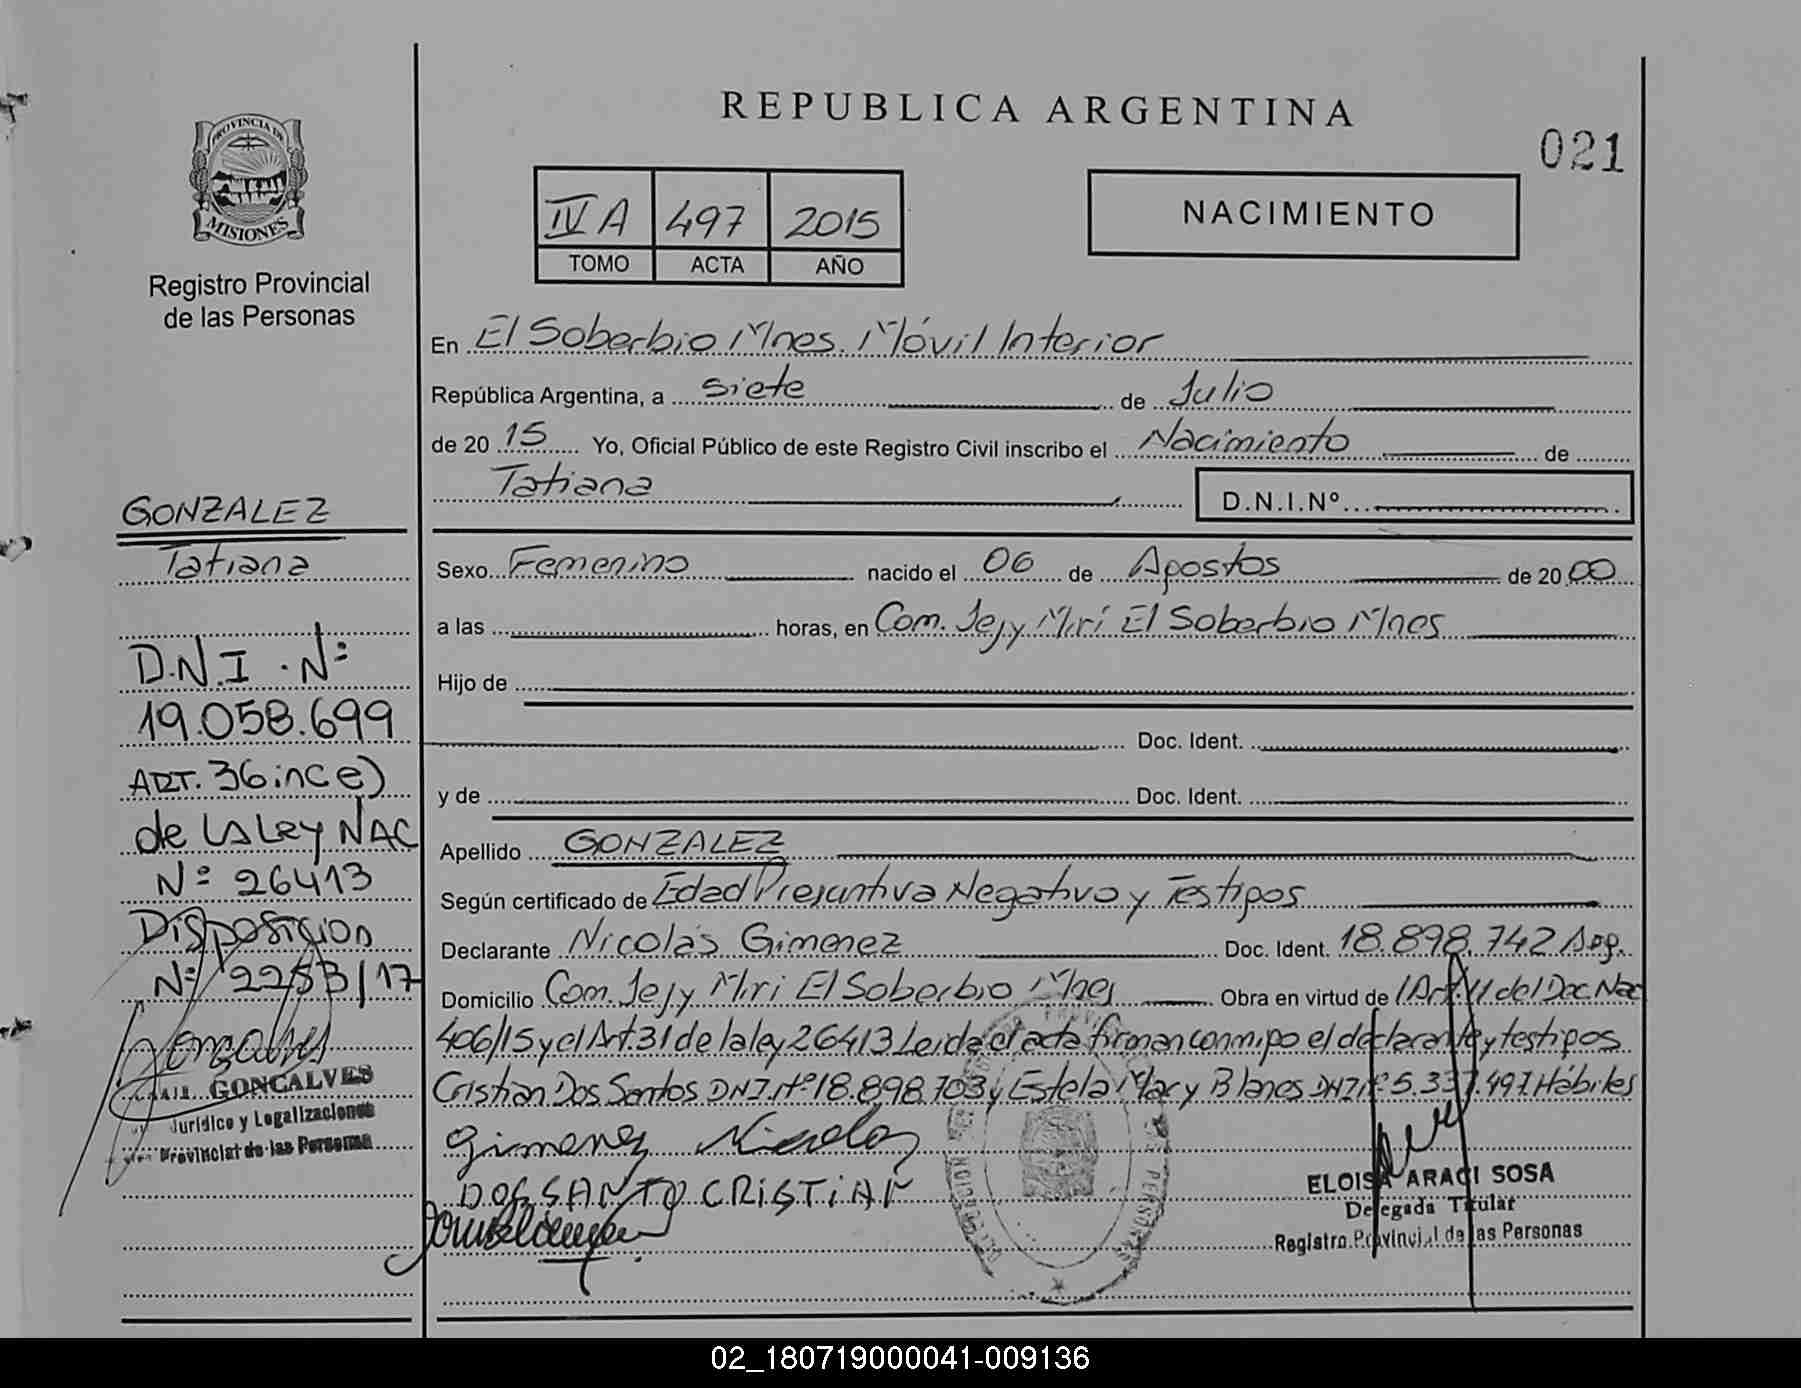 REPUBLICA ARGENTINA
021
PROVINCIA DE
MISIONES
Registro Provincial
de las Personas
IV A 497 2015
TOMO ACTA AÑO
NACIMIENTO
En El Soberbio Mnes. Móvil Interior
República Argentina, a siete de Julio
de 20 15 Yo, Oficial Público de este Registro Civil inscribo el Nacimiento de
Tatiana D.N.I.Nº
Sexo Femenino nacido el 06 de Agostos de 20 00
a las horas, en Com. Jejy Miri El Soberbio Mnes
Hijo de
Doc. Ident.
y de Doc. Ident.
Apellido GONZALEZ
Según certificado de Edad Presuntiva Negativo y Testigos
Declarante Nicolás Gimenez Doc. Ident. 18.898.742 Arg.
Domicilio Com. Jejy Miri El Soberbio Mnes Obra en virtud de l Art. 11 del Dec. Nac
406/15 y el Art. 31 de la ley 26413 Leida el acta firman conmigo el declarante y testigos
Cristian Dos Santos DNI. Nº 18.898.703 y Estela Mary Blanes DNI Nº 5.337.497 Hábiles
Gimenez Nicolas
DOS SANTO CRISTIAN
ELOISA ARACI SOSA
Delegada Titular
Registro Provincial de las Personas
GONZALEZ
Tatiana
D.N.I. Nº
19.058.699
ART. 36 inc e)
de LA Ley NAC
Nº 26413
Disposicion
Nº 2253/17
GONCALVES
Juridico y Legalizaciones
Provincial de las Personas
02_180719000041-009136